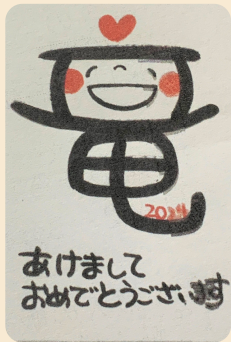 竜
2024
あけまして
おめでとうございます